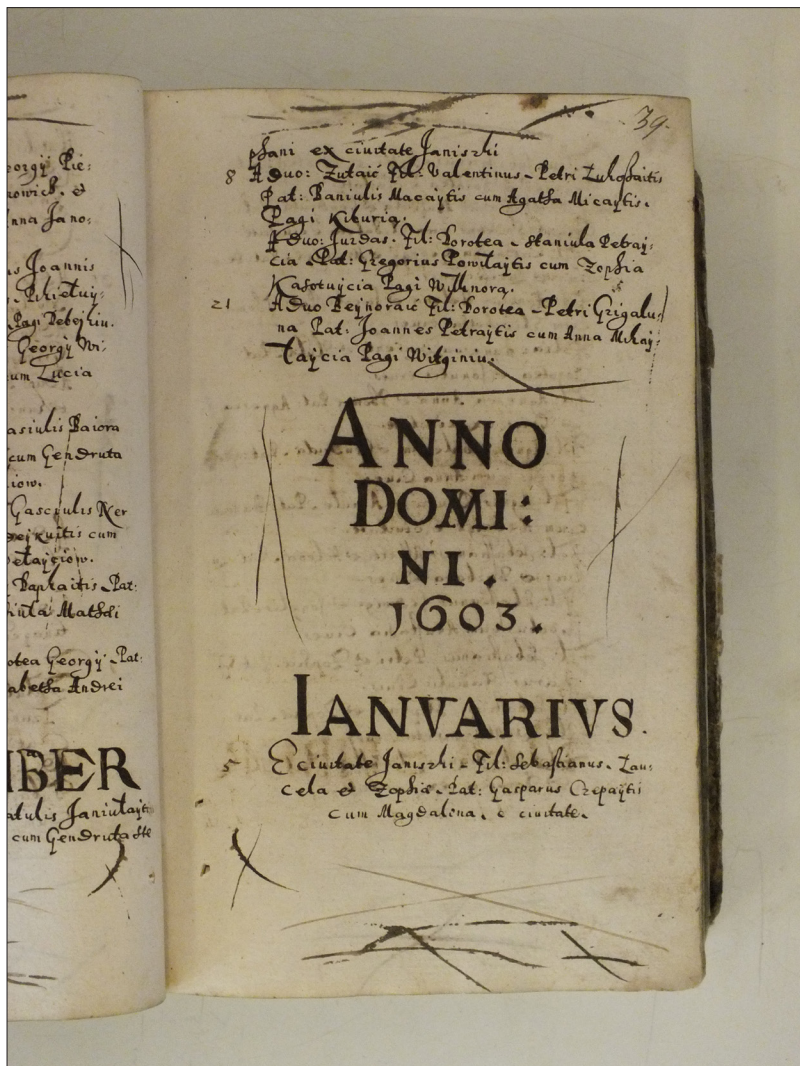 eorgÿ Pie:
nowick. et
nna Jano:
s Joannis
Pagi Debejliu.
Georgÿ Wi:
um Lucia
asiulis Baiora
cum Gendruta
iow.
Gascpulis Ker
cum
etajciow.
Daphaitis Pat:
Mathei
otea Georgÿ Pat:
abetha Andrei
IBER
atulis Janiulajt
cum Gendruta Ste
39.
phani ex ciuitate Janiszki
8 A duo: Zutaic Fil: Valentinus Petri Lukßaitis
Pat: Daniulis Macaÿtis cum Agatha Micaÿtis.
Pagi Kikuriu.
A duo: Jurdas. Fil: Dorotea Staniula Petraj:
cia Pat: Gregorius Powilaÿtis cum Zophia
Kasotuÿcia Pagi Wilknorą.
21 A duo Dejnoraic Fil: Dorotea Petri Grigalu:
na Pat: Joannes Petraÿtis cum Anna Mikaj:
laÿcia Pagi Witginiu.
ANNO
DOMI:
NI.
1603.
IANVARIVS.
5 E ciuitate Janiszki Fil: Sebastianus. Lau:
cela et Zophia. Pat: Gasparus Czepaÿtis
cum Magdalena. e ciuitate.